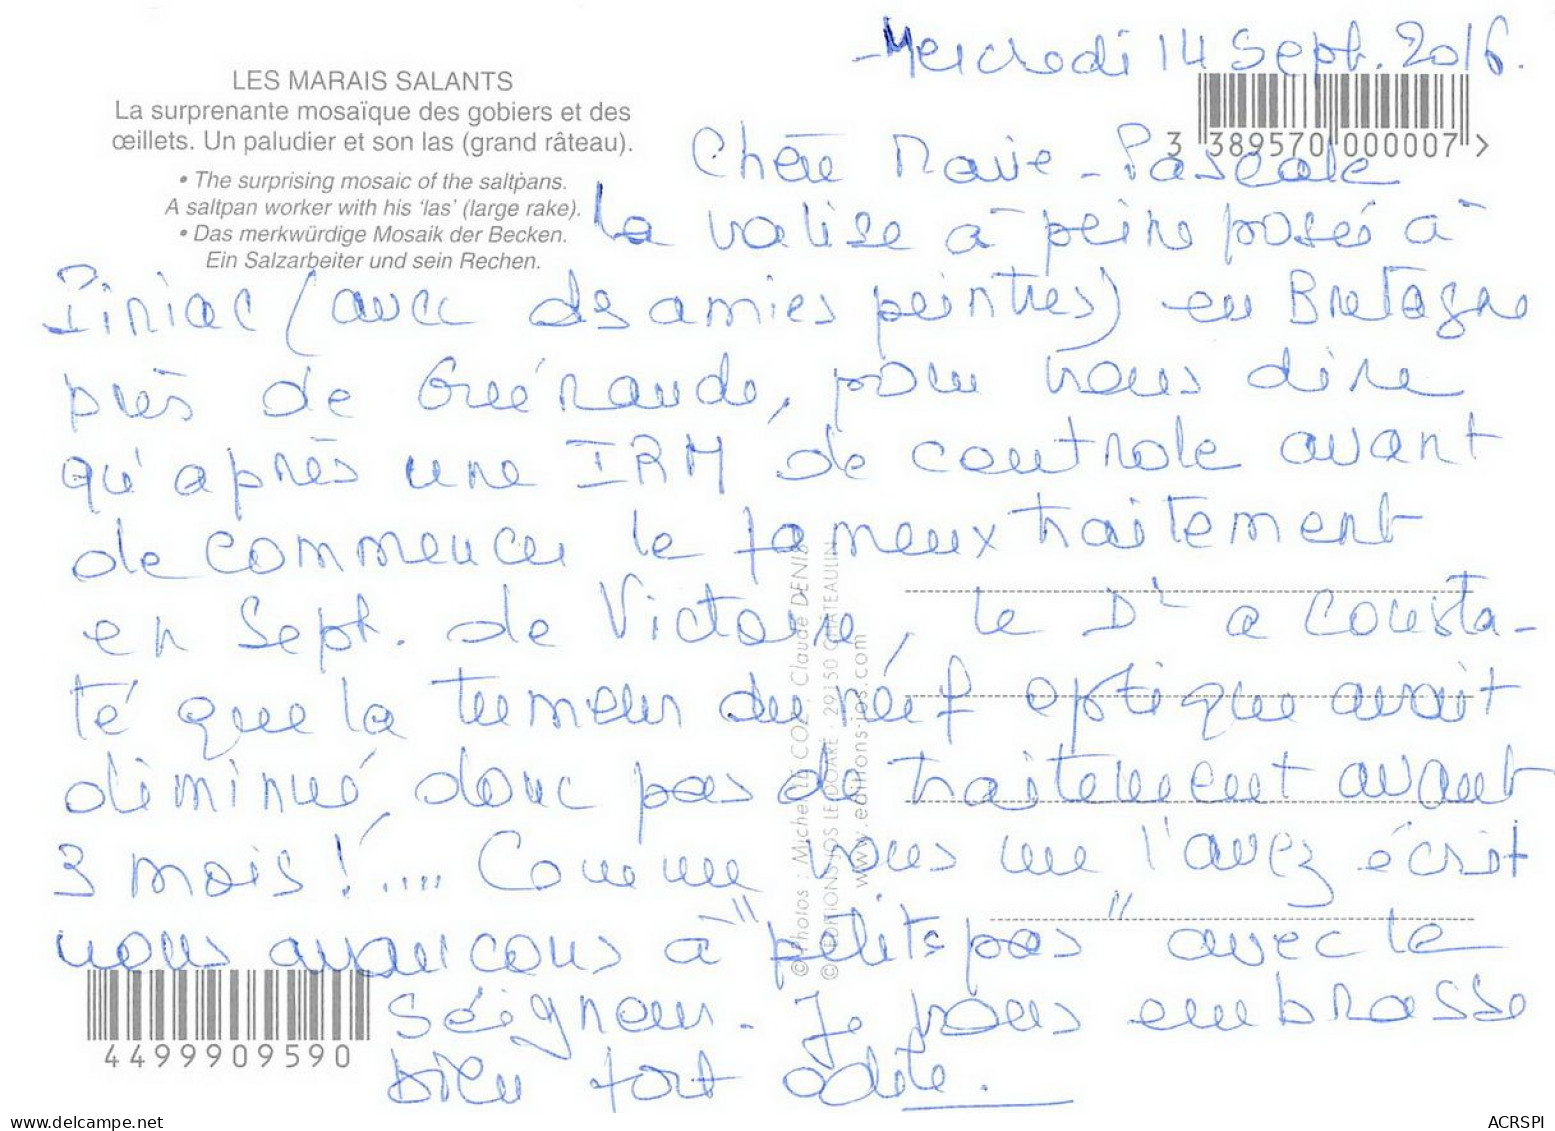 Mercredi 14 Sept. 2016.
LES MARAIS SALANTS
La surprenante mosaïque des gobiers et des
œillets. Un paludier et son las (grand râteau).
• The surprising mosaic of the saltpans.
A saltpan worker with his 'las' (large rake).
• Das merkwürdige Mosaik der Becken.
Ein Salzarbeiter und sein Rechen.
3 389570 000007 >
Chère Marie-Pascale
la valise à peine posée à
Piriac (avec des amies peintres) en Bretagne
près de Guérande, pour vous dire
qu'après une IRM de controle avant
de commencer le fameux traitement
en Sept. de Victoire, le Dr a consta-
té que la tumeur du nerf optique avait
diminué, donc pas de traitement avant
3 mois !.... Comme vous me l'avez écrit
nous avançons à "petits pas" avec le
Seigneur. Je vous embrasse
bien fort Odile.
© Photos : Michel LE COZ, Claude DENIS
© EDITIONS JOS LE DOARÉ - 29150 CHÂTEAULIN
www.editions-jos.com
4499909590
www.delcampe.net
ACRSPI